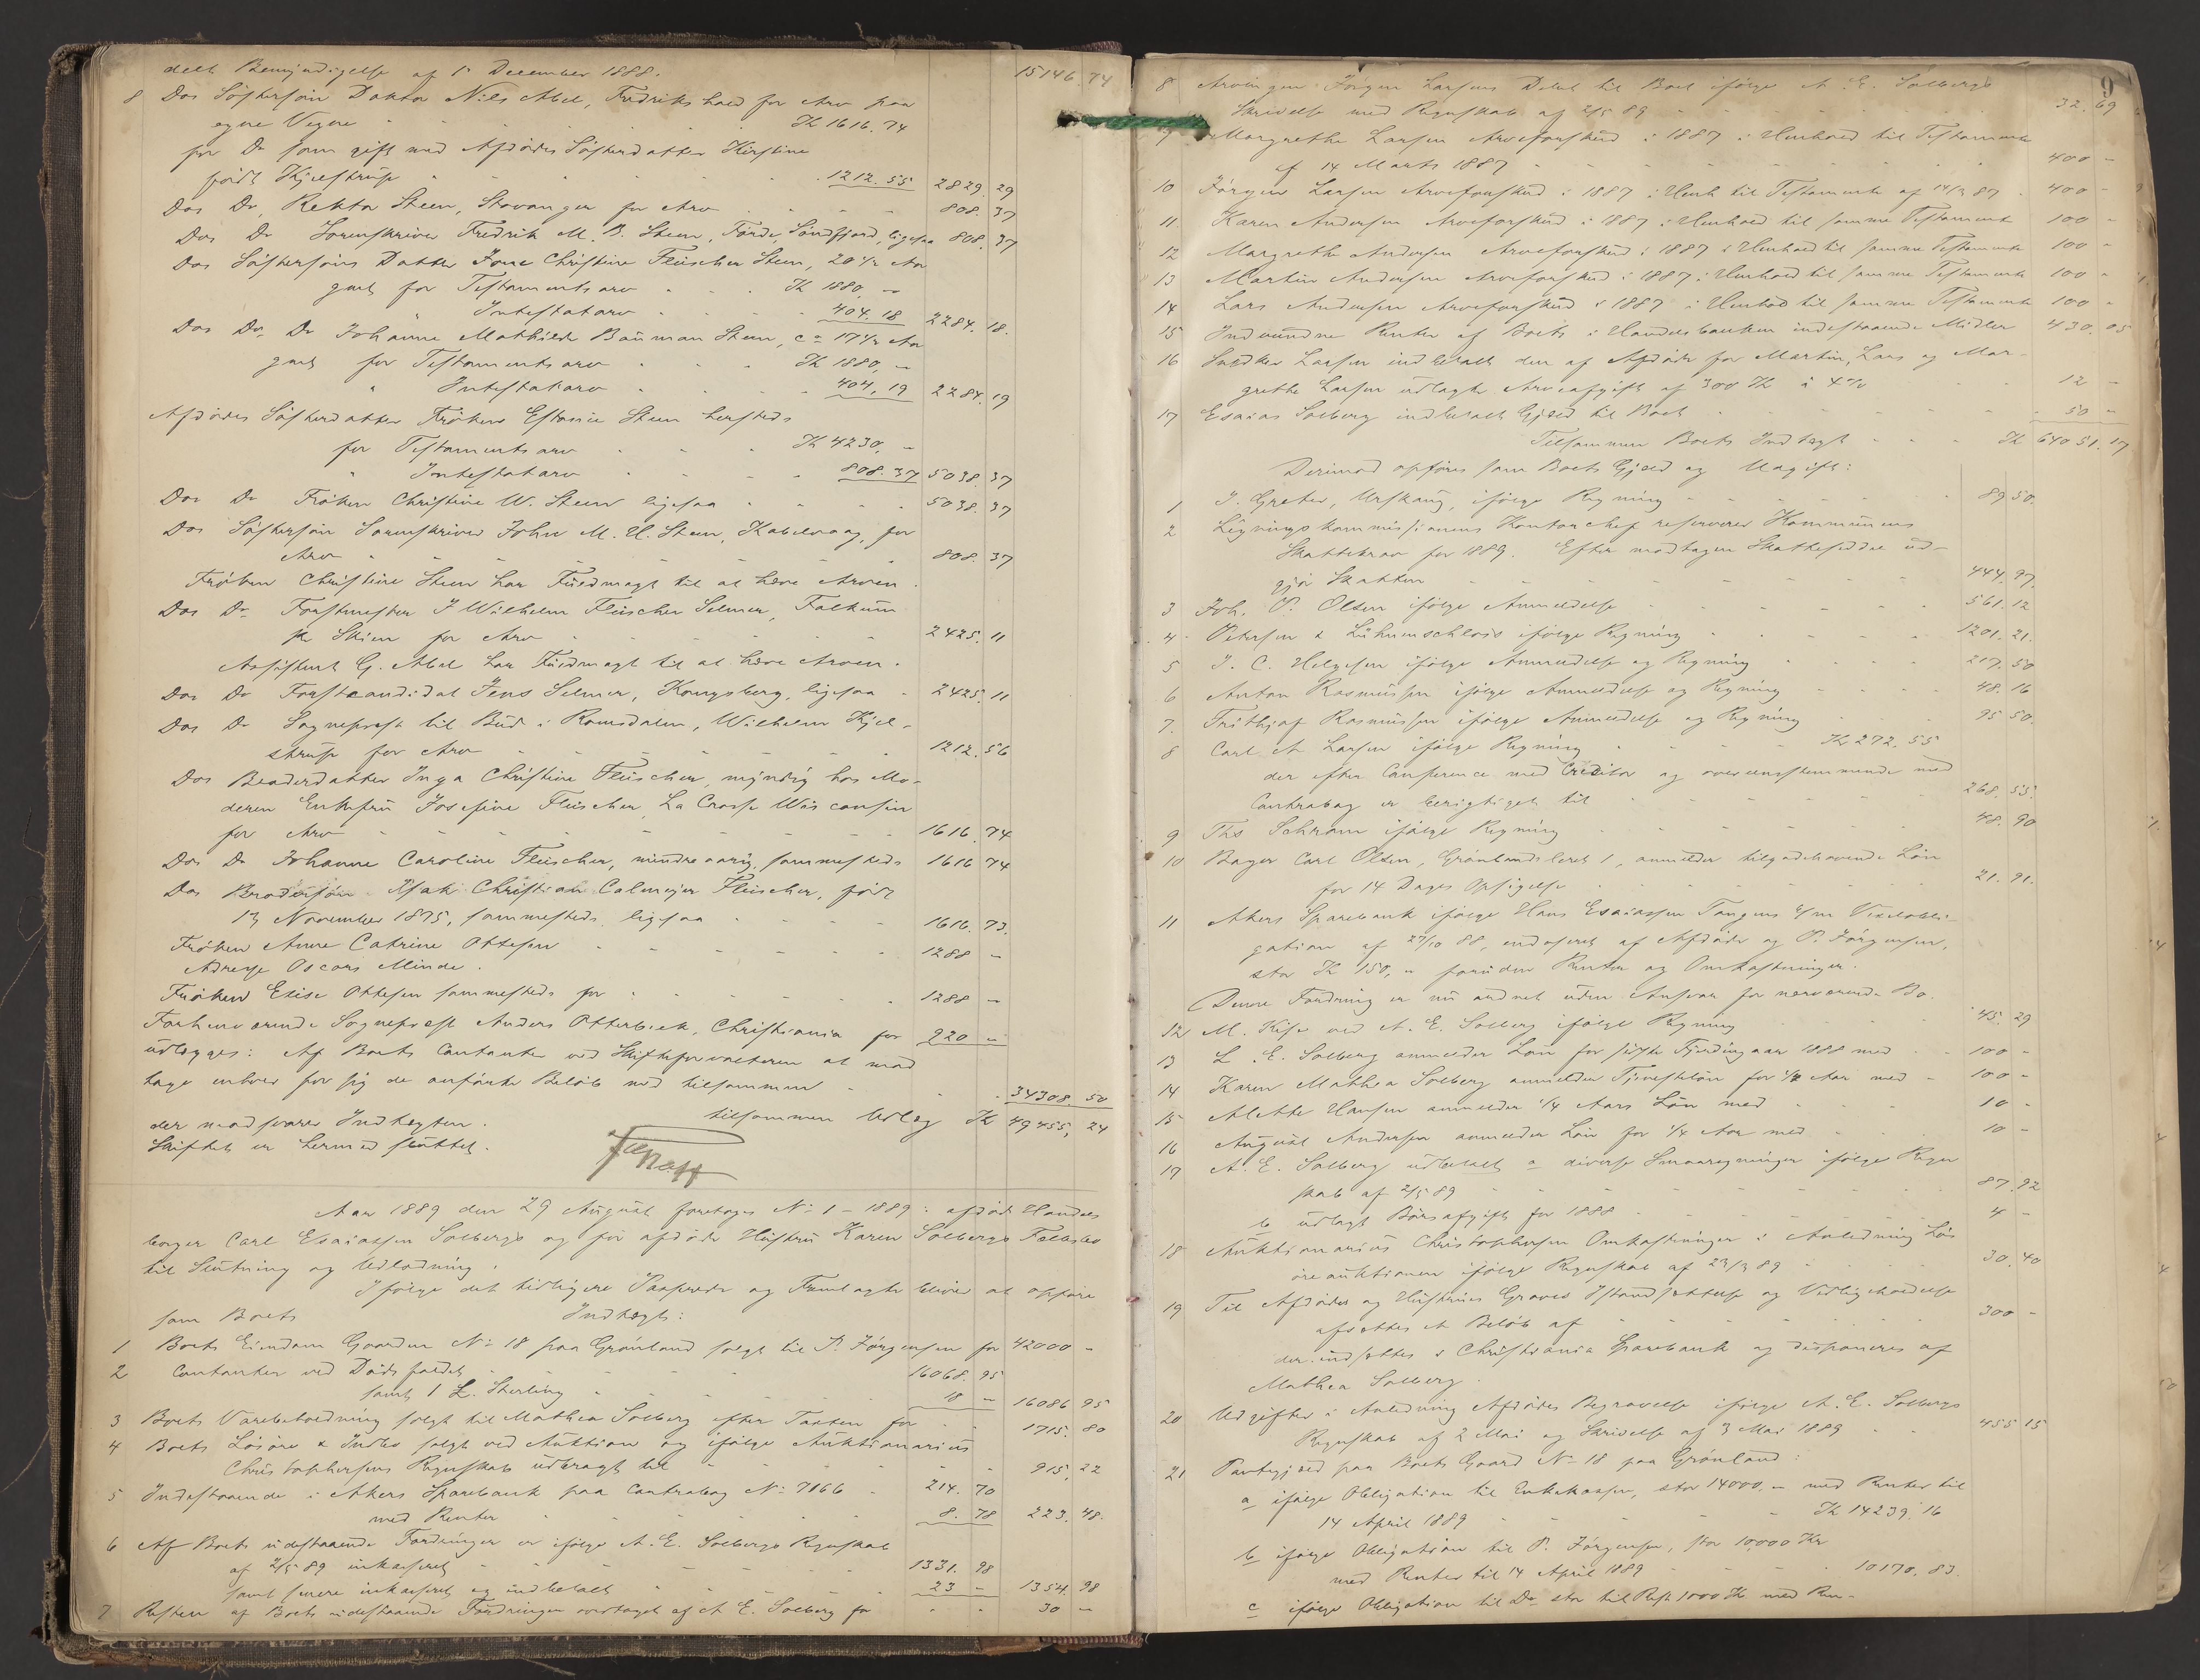 delt Bemyndigelse af 1ʳ December 1888. 15146 74
8 Dos Söstersön Doktor Nils Abel, Fredrikshald for Arv paa
egne Vegne K 1616.74
for Do som gift med Afdödes Söster datter Kirstine
födt Kjelstrup 1212.55 2829 29
Dos Do, Rektor Steen, Stavanger for Arv 808. 37
Dos Do Sorenskriver Fredrik M. B. Steen, Förde, Söndfjord, ligesaa 808. 37
Dos Söstersöns Datter Jonne Christine Fleischer Steen, 20 1/2 Aar
gml for Testamentsarv K 1880, –
Intestatarv 404.18 2284. 18.
Dos Do, Do Johanne Mathilde Bauman Steen, ca 17 1/2 Aar
gml for Testamentsarv K 1880, –
" Intestatarv 404,19 2284. 19
Afdödes Sösterdatter Fröken Steen hersteds
for Testamentsarv K 4230, –
" Intestatarv 808.37 5038. 37
Dos Do Fröken Christine W. Steen ligesaa 5038. 37
Dos Söstersön Sorenskriver John M. U. Steen, Kabelvaag, for
Arv 808. 37
Fröken Christine Steen har Fuldmagt til at hæve Arven.
Dos Do Forstmester J Wilhelm Fleischer Selmer, Falkum
pr Skien for Arv 2425. 11
Assistent G. Abel har Fuldmagt til at hæve Arven.
Dos Do Forstcandidat Jens Selmer, Kongsberg, ligesaa 2425. 11
Dos Do Sogneprest til Bud i Romsdalen, Wilhelm Kjel-
strup for Arv 1212. 56
Dos Broderdatter Inga Christine Fleischer, myndig hos Mo-
deren Enkefru Josefine Fleischer La Crosse Wisconsin
for Arv 1616. 74
Dos Do Johanne Caroline Fleischer, mindreaarig, sammesteds 1616 74
Dos Brodersön Isak Christian Calmeyer Fleischer, födt
13 November 1875, sammesteds, ligesaa 1616. 73.
Fröken Anne Catrine Ottesen 1288 –
Adresse Oscars Minde.
Fröken Elise Ottesen sammesteds for 1288 –
Forhenværende Sogneprest Anders Otterbech, Christiania for 920 –
udlægges: Af Boets Contanter ved Skifteforvalteren at mod
tage enhver for sig de anförte Belöb med tilsammen 34308. 50
tilsammen Udlæg K 49455, 24
der modsvarer Indtægten.
Skiftet er hermed sluttet.
Aar 1889 den 29 August foretoges No 1 – 1889: afdöde Handels
borger Carl Esaiassen Solbergs og för afdöde Hustru Karen Solbergs Fællesbo
til Slutning og Udlodning.
Ifölge det tidligere Passerede og Fremlagte bliver at opföre
som Boets Indtægt:
1 Boets Eiendom Gaarden No 18 paa Grönland solgt til P. Jörgensen for 42000 –
2 Contanter ved Dödsfaldet 16068. 95
samt 1 £. Sterling 18 – 16086 95
3 Boets Varebeholdning solgt til Mathea Solberg efter Taxten for 1715. 80
4 Boets Lösöre & Indbo solgt ved Auktion og ifölge Auktionarius
Christophersens Regnskab udbragt til 915, 22
5 Indestaaende i Akers Sparebank paa Contrabog No 7166 214. 70
med Renter 8. 78 223. 48.
6 Af Boets udestaaende Fordringer er ifölge A. E. Solbergs Regnskab
af 2/5 89 inkasseret 1331. 98
samt senere inkasseret og indbetalt 23 – 1354. 98
7 Resten af Boets udestaaende Fordringer overtaget af A E. Solberg for 30 –
9
8 Arvingen Jörgen Larsens Debet til Boet ifölge A. E. Solbergs
Skrivelse med Regnskab af 2/5 89 32. 69
9 Margrethe Larsen Arveforskud i 1887 i Henhold til Testamente
af 14 Marts 1887 400 –
10 Jörgen Larsen Arveforskud i 1887 i Henh til Testamente af 14/3 87 400 –
11 Karen Andersen Arveforskud i 1887 i Henhold til samme Testamente 100 –
12 Margrethe Andersen Arveforskud i 1887 i Henhold til samme Testamente 100 –
13 Martin Andersen Arveforskud i 1887 i Henhold til samme Testamente 100 –
14 Lars Andersen Arveforskud i 1887 i Henhold til samme Testamente 100 –
15 Indvundne Renter af Boets i Handelsbanken indestaaende Midler 430. 05
16 Snedker Larsen indbetalt den af Afdöde for Martin, Lars og Mar-
grethe Larsen udlagte Arveafgift af 300 K à 4% 12 –
17 Esaias Solberg indbetalt Gjæld til Boet 50 –
Tilsammen Boets Indtægt K 64051. 17
Derimod opföres som Boets Gjæld og Udgift:
1 J. Græter, Urskoug, ifölge Regning 89 50.
2 Ligningskommissionens Kontorchef reserverer Kommunens
Skattekrav for 1889. Efter modtagen Skatteseddel ud-
gjör Skatten 444. 97.
3 Joh. P. Olsen ifölge Anmeldelse 561. 12
4 Petersen & Lühmenschloss ifölge Regning 1201. 21.
5 J. C. Helgesen ifölge Anmeldelse og Regning 217. 50
6 Anton Rasmussen ifölge Anmeldelse og Regning 48. 16
7. Frithjof Rasmussen ifölge Anmeldelse og Regning 95 50.
8 Carl A Larsen ifölge Regning K 272. 55
der efter Conference med Creditor og overensstemmende med
Contrabog er berigtiget til 268. 55.
9 Ths Schram ifölge Regning 48. 90
10 Bager Carl Olsen, Grönlandsleret 1, anmelder tilgodehavende Lön
for 14 Dages Opsigelse 21. 91.
11 Akers Sparebank ifölge Hans Esaiassen Tangens 6/m Vexelobli-
gation af 27/10 88, endosseret af Afdöde og P. Jörgensen,
stor K 150, – foruden Renter og Omkostninger.
Denne Fordring er nu ordnet uden Ansvar for nærværende Bo.
12 M. Kise ved A. E. Solberg ifölge Regning 45. 29
13 L. E. Solberg anmelder Lön for sidste Fjerdingaar 1888 med 100 –
14 Karen Mathea Solberg anmelder Tjenestelön for 1/2 Aar med 100 –
15 Alette Hansen anmelder 1/4 Aars Lön med 10 –
16 August Andersen anmelder Lön for 1/4 Aar med 10 –
17 A. E. Solberg udbetalt a diverse Smaaregninger ifölge Regn
skab af 2/5 89 87. 92
b udlagt Börsafgift for 1888 4 –
18 Auktionarius Christophersen Omkostninger i Anledning Lös
öreauktionen ifölge Regnskab af 23/3 89 30. 40
19 Til Afdödes og Hustrus Graves Istandsættelse og Vedligeholdelse
afsættes et Belöb af 300 –
der indsættes i Christiania Sparebank og disponeres af
Mathea Solberg.
20 Udgifter i Anledning Afdödes Begravelse ifölge A. E. Solbergs
Regnskab af 2 Mai og Skrivelse af 3 Mai 1889 455 15
21 Pantegjæld paa Boets Gaard No 18 paa Grönland:
a ifölge Obligation til Enkekassen, stor 14000, – med Renter til
14 April 1889 K 14239. 16
b ifölge Obligation til P. Jörgensen, stor 10,000 Kr
med Renter til 14 April 1889 10170. 83.
c ifölge Obligation til Do stor til Rest 1000 K med Ren-